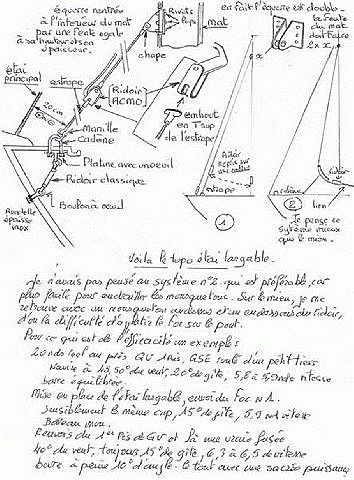 équerre rentrée
à l'intérieur du mat
par une fente égale
à sa hauteur et son
épaisseur.
Rivets
Pops
mat
chape
en fait l'équerre est double
la fente
du mat
doit faire
2 x x
x
x
étai
principal
20cm
estrope
Ridoir
(ACMO)
embout
en T sup
de l'estrope
Manille
cadène
Platine avec un oeil
Ridoir classique
Boulon à oeil
Rondelle
épaisse
inox
estrope
1
2
lien
Je pense ce
système mieux
que le mien.
Voilà le topo étai largable.
Je n'avais pas pensé au système n°2 qui est préférable, car
plus facile pour endrailler les mousquetons. Sur le mien, je me
retrouve avec un mousqueton au dessus et un en dessous du ridoir,
d'où la difficulté d'aplatir le foc sur le pont.
Pour ce qui est de l'efficacité un exemple :
20 nds réel au près GV 1 ris, GSE roulé d'un petit tiers
Navire à 45, 50° du vent, 20° de gîte, 5,6 à 5,9 nds vitesse
barre équilibrée.
Mise en place de l'étai largable, envoi du Foc N°1.
Sensiblement le même cap, 15° de gîte, 5,9 nd vitesse
Bateau mou.
Renvoi du 1er ris de GV et là une vraie fusée
40° du vent, toujours 15° de gîte, 6,3 à 6,5 de vitesse
barre à peine 10° d'angle. le tout avec une sacrée puissance